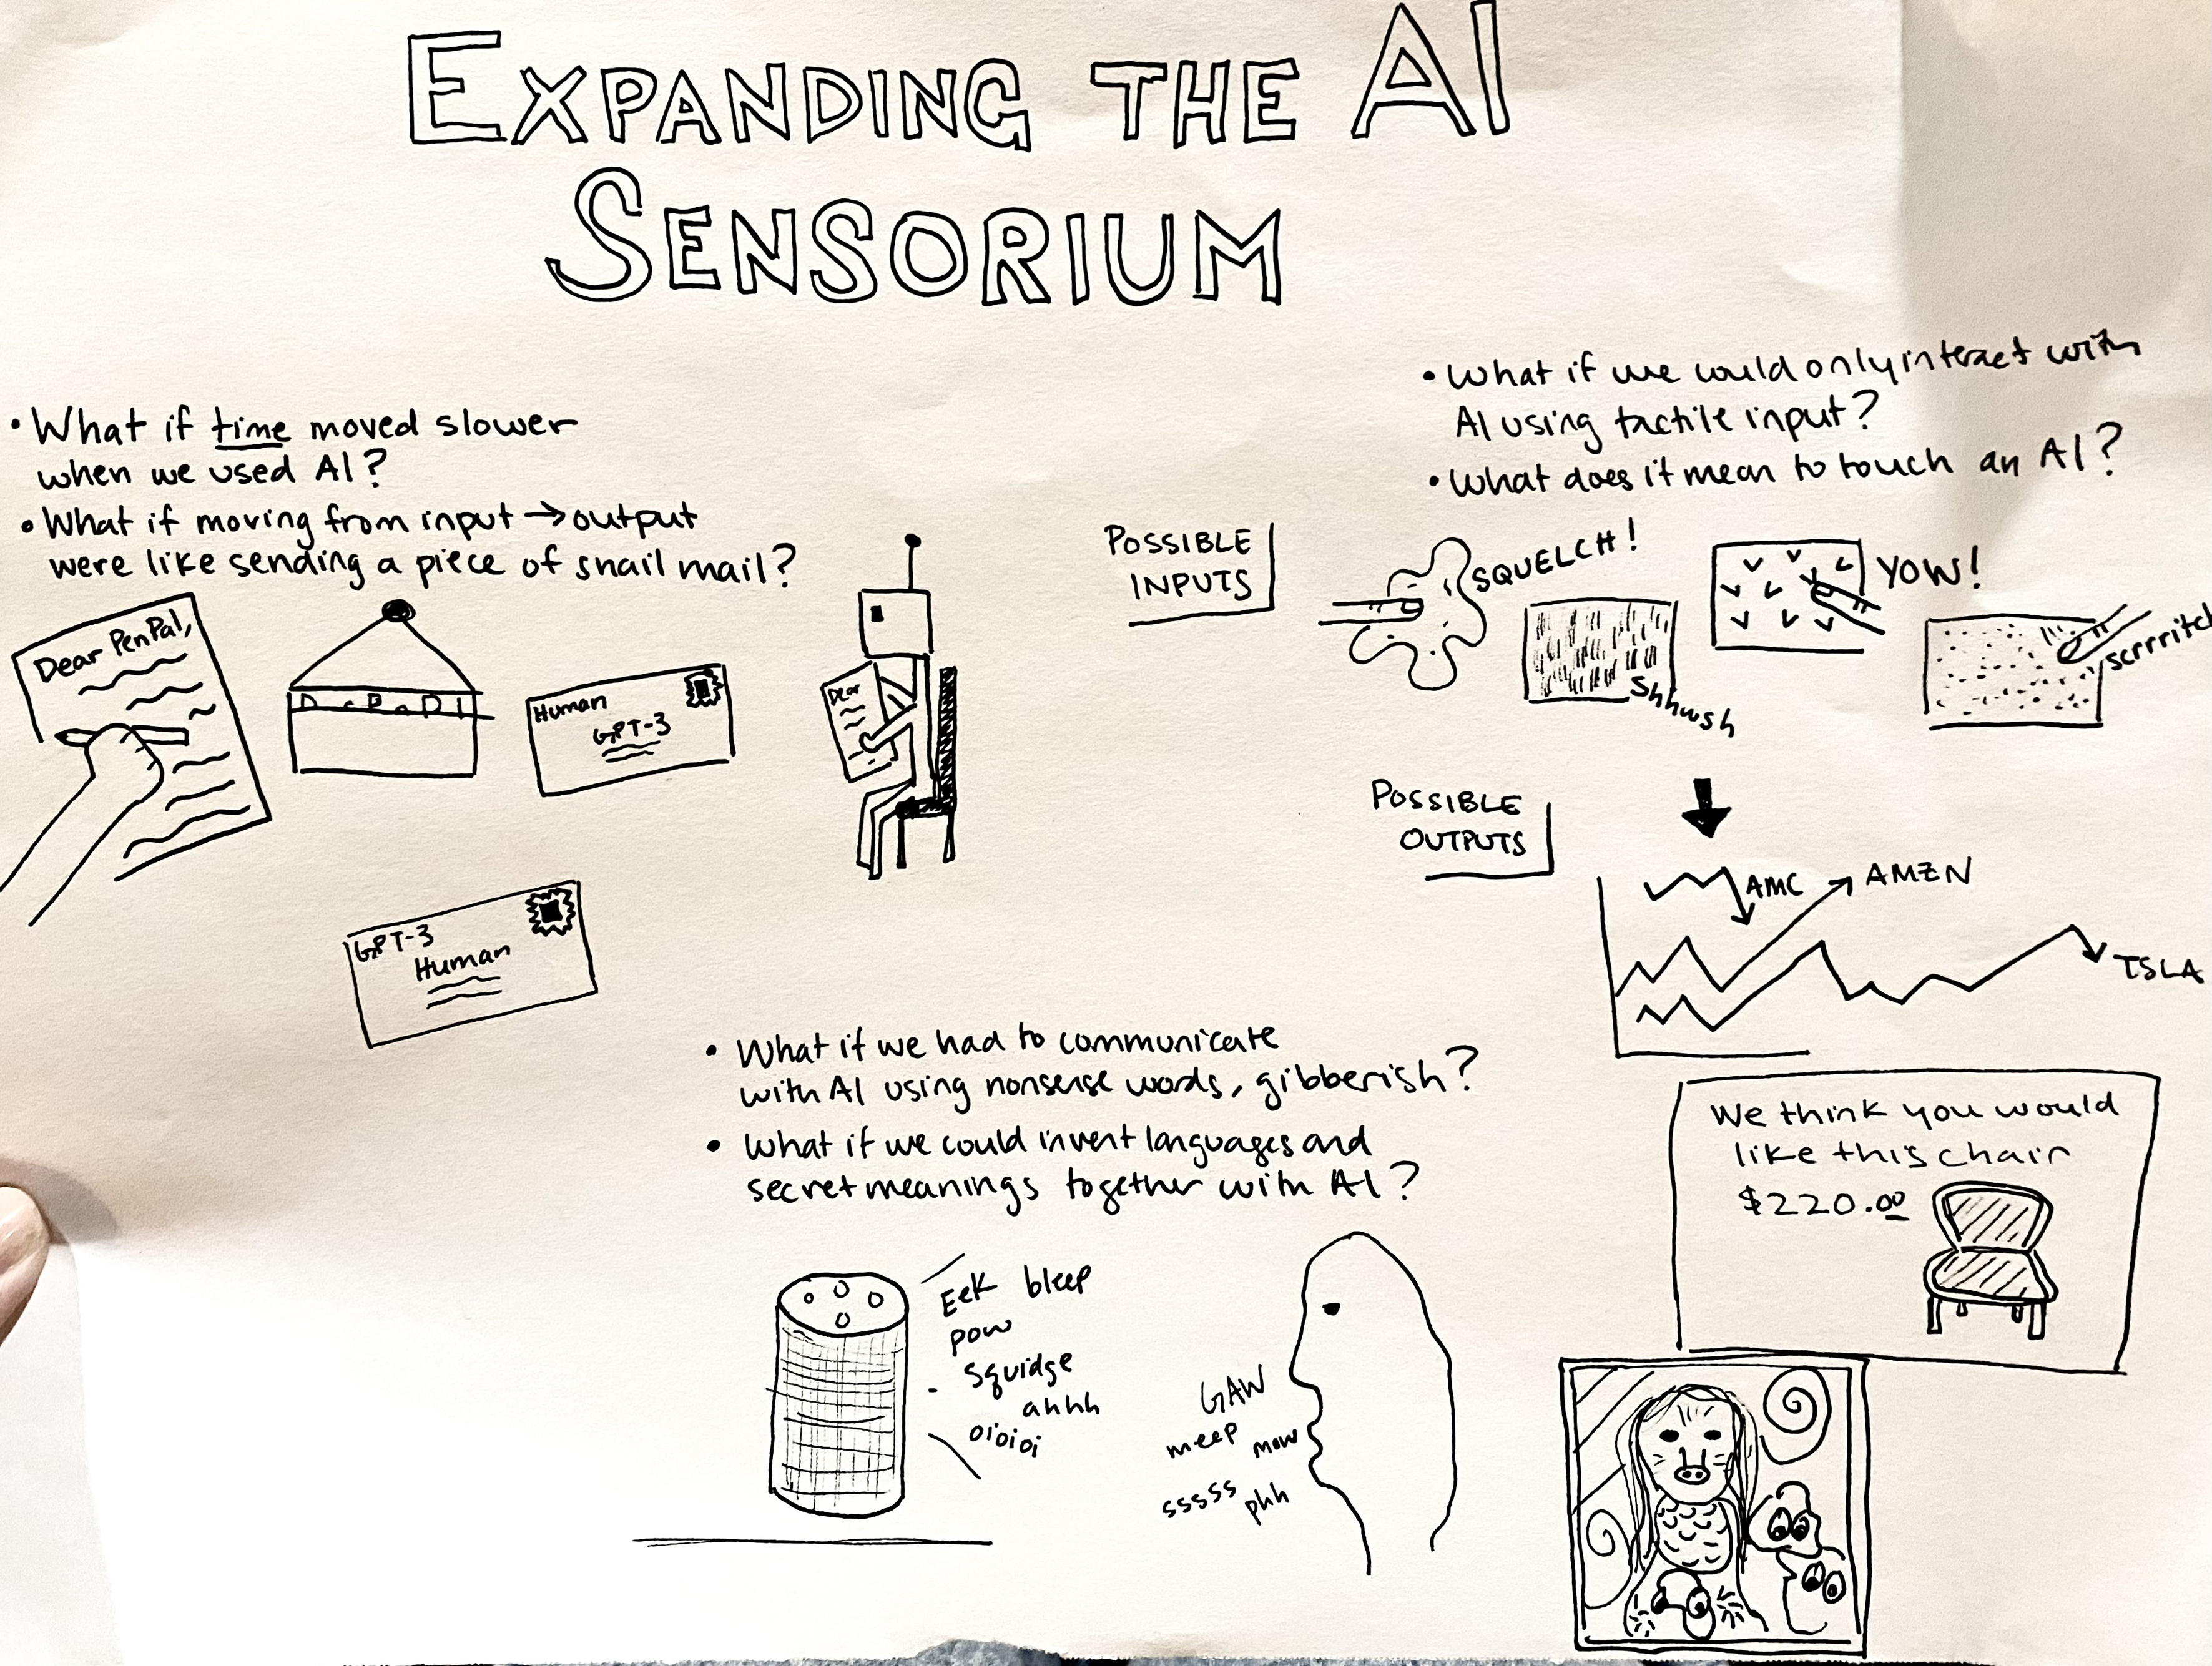 EXPANDING THE AI
SENSORIUM
• What if time moved slower
when we used AI?
• What if moving from input → output
were like sending a piece of snail mail?
Dear PenPal,
Human
GPT-3
Dear
GPT-3
Human
• What if we could only interact with
AI using tactile input?
• What does it mean to touch an AI?
POSSIBLE
INPUTS
SQUELCH!
Shhwsh
YOW!
scrrritch
POSSIBLE
OUTPUTS
AMC
AMZN
TSLA
We think you would
like this chair
$220.00
• What if we had to communicate
with AI using nonsense words, gibberish?
• What if we could invent languages and
secret meanings together with AI?
Eek bleep
pow
squidge
ahhh
oioioi
GAW
meep mow
sssss phh